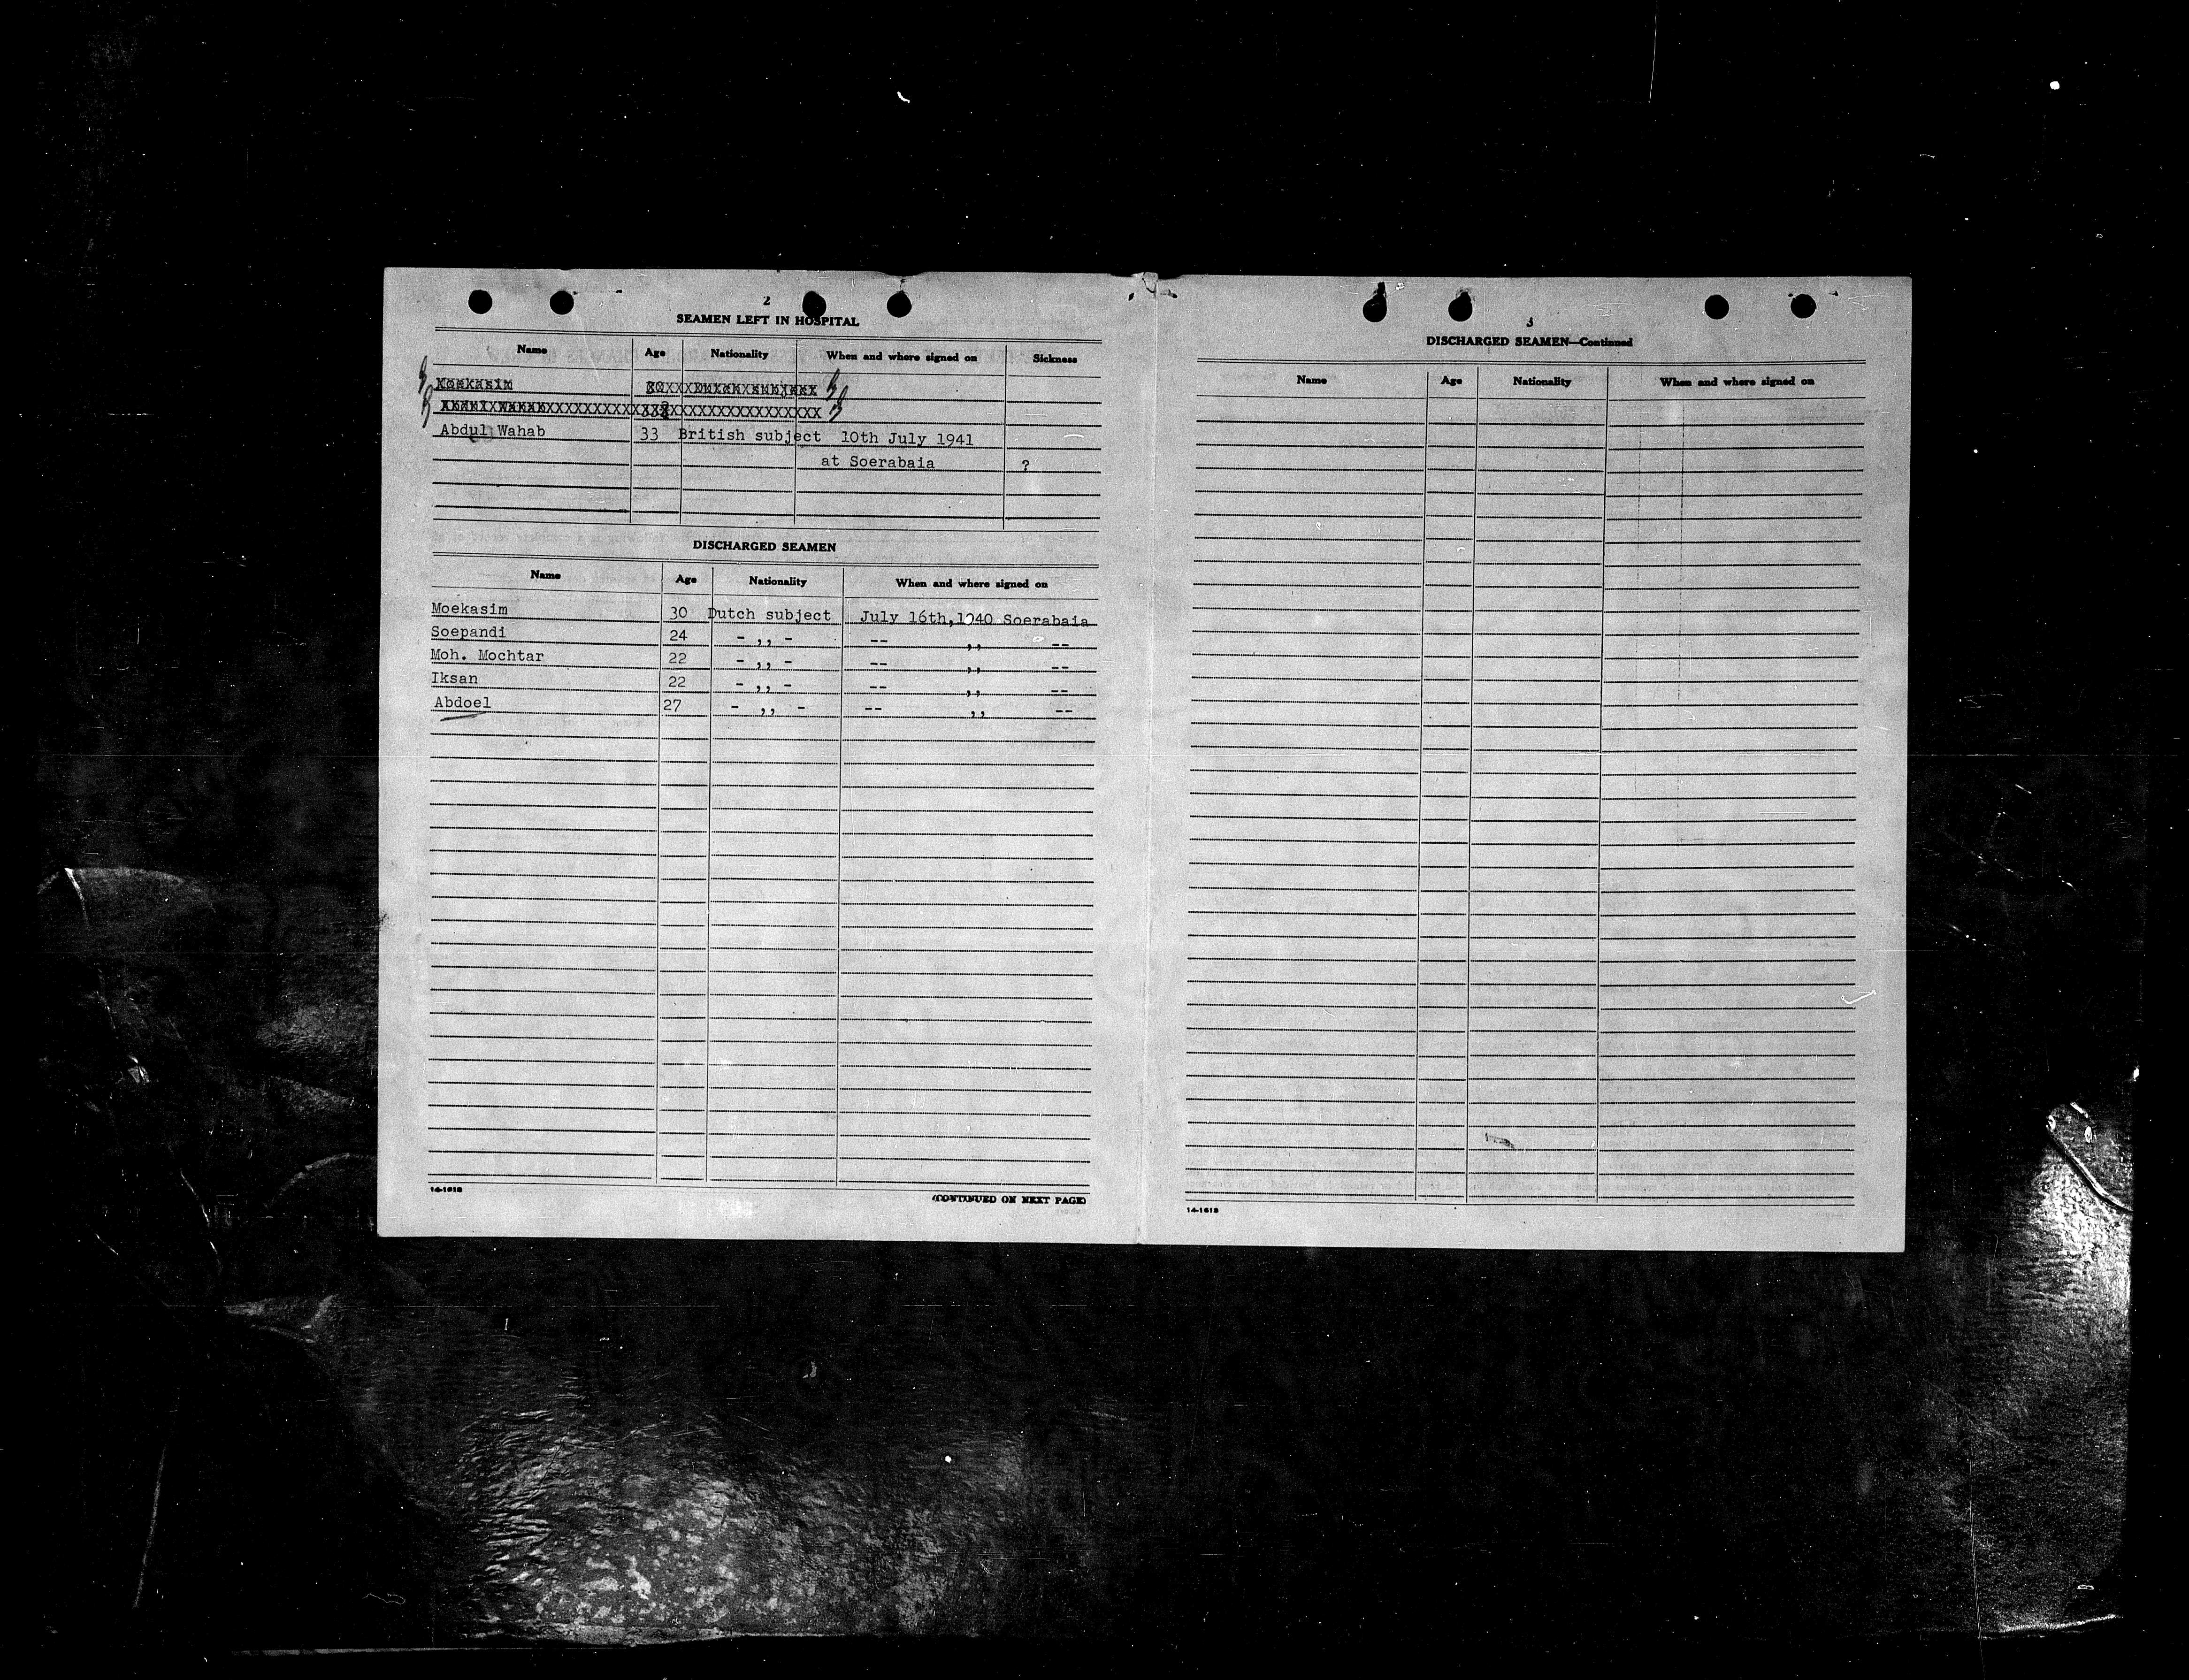 2
SEAMEN LEFT IN HOSPITAL
Name Age Nationality When and where signed on Sickness
Moekasim 30
Abdul Wahab 33 British subject 10th July 1941
at Soerabaia ?
DISCHARGED SEAMEN
Name Age Nationality When and where signed on
Moekasim 30 Dutch subject July 16th,1940 Soerabaia
Soepandi 24 - ,, - -- ,, --
Moh. Mochtar 22 - ,, - -- ,, --
Iksan 22 - ,, - -- ,, --
Abdoel 27 - ,, - -- ,, --
14-1618
(CONTINUED ON NEXT PAGE)
3
DISCHARGED SEAMEN—Continued
Name Age Nationality When and where signed on
14-1618